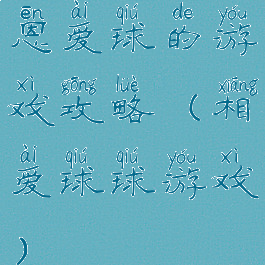 ēn ài qiú de yóu
恩爱球的游
xì gōng lüè xiāng
戏攻略(相
ài qiú qiú yóu xì
爱球球游戏
)